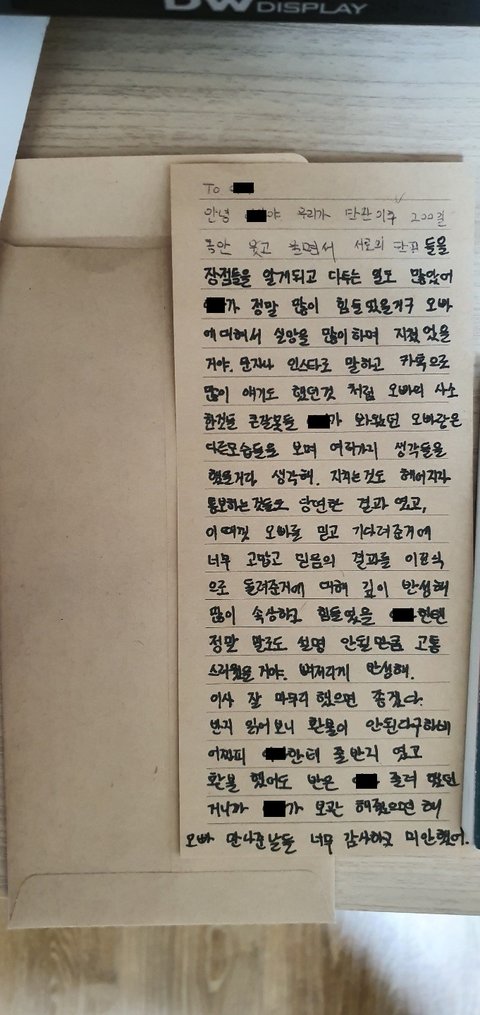 DW DISPLAY
To
안녕 야 우리가 만난 이후 200일
동안 웃고 울면서 서로의 단점들을
장점들을 알게되고 다투는 일도 많았어
가 정말 많이 힘들었을거구 오빠
에 대해서 실망을 많이하며 지쳤었을
거야. 문자나 인스타로 말하고 카톡으로
많이 얘기도 했던것 처럼 오빠의 사소
한것들 큰잘못들 가 봐왔던 오빠같은
다른모습들을 보며 여러가지 생각들을
했을거라 생각해. 지치는것도 헤어지자
통보하는것들도 당연한 결과 였고,
이때껏 오빠를 믿고 기다려준거에
너무 고맙고 믿음의 결과를 이런식
으로 돌려준거에 대해 깊이 반성해
많이 속상하고 힘들었을 한텐
정말 말로도 설명 안될만큼 고통
스러웠을거야. 뼈저리게 반성해.
이사 잘 마무리 했으면 좋겠다.
반지 읽어보니 환불이 안된다구하네
어짜피 한테 줄반지 였고
환불 했어도 반은 줄려 했던
거니까 가 보관 해줬으면 해
오빠 만나준날들 너무 감사하고 미안했어.